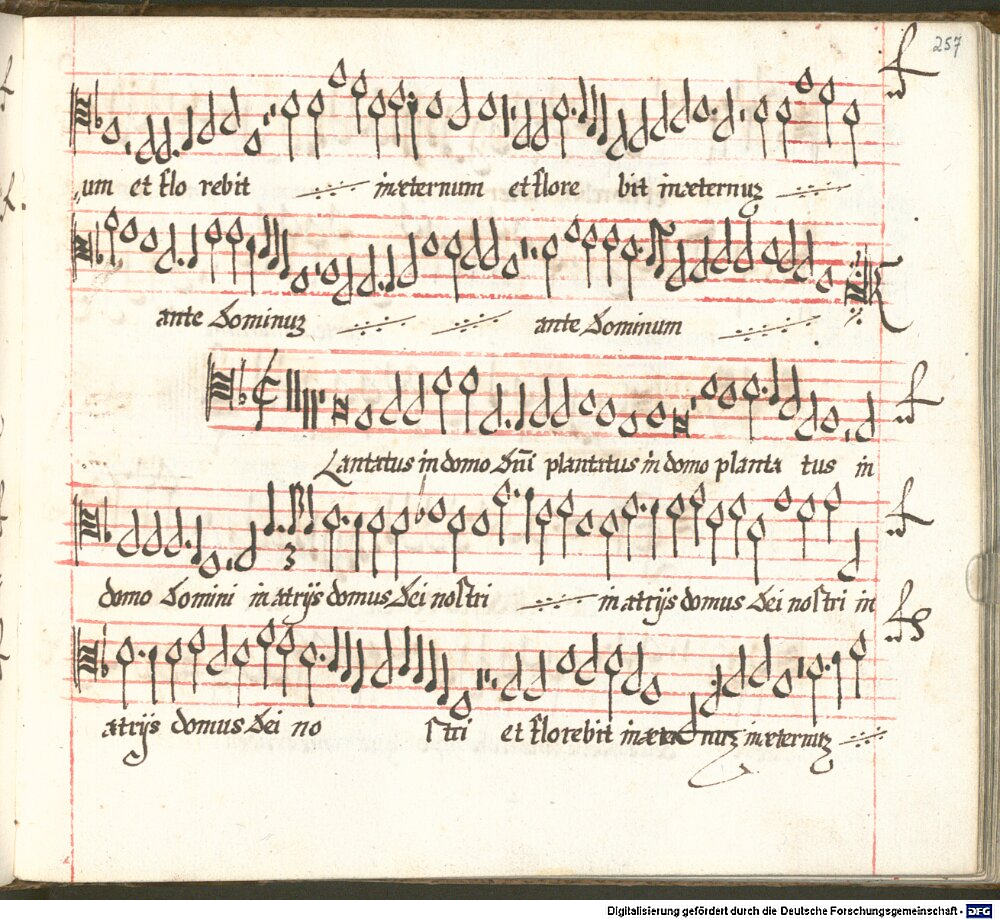 257
um et flo rebit in æternum et flore bit in æternuz
ante dominuz ante dominum
Lantatus in domo dñi plantatus in domo planta tus in
domo domini in atrijs domus dei nostri in atrijs domus dei nostri in
3
atrijs domus dei no stri et florebit in æter nuz in æternuz
Digitalisierung gefördert durch die Deutsche Forschungsgemeinschaft - DFG